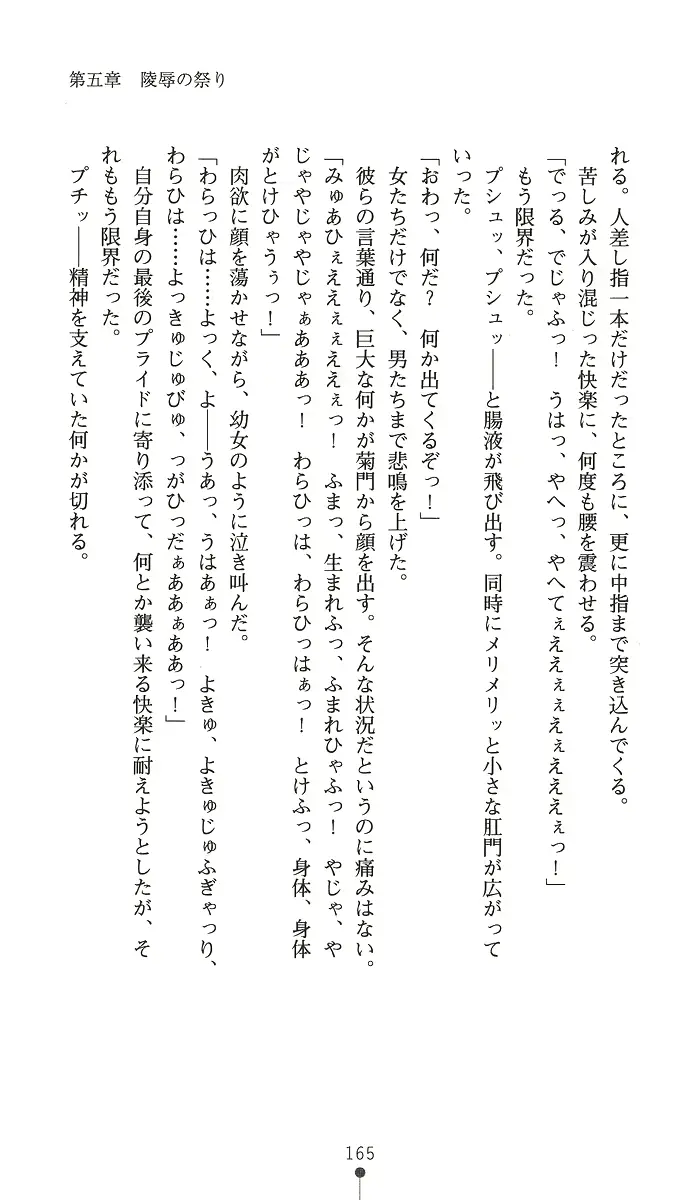 第五章　陵辱の祭り
れる。人差し指一本だけだったところに、更に中指まで突き込んでくる。
　苦しみが入り混じった快楽に、何度も腰を震わせる。
「でっる、でじゃふっ！　うはっ、やへっ、やへてぇええぇぇえぇえええぇっ！」
　もう限界だった。
　プシュッ、プシュッ――と腸液が飛び出す。同時にメリメリッと小さな肛門が広がって
いった。
「おわっ、何だ？　何か出てくるぞっ！」
　女たちだけでなく、男たちまで悲鳴を上げた。
　彼らの言葉通り、巨大な何かが菊門から顔を出す。そんな状況だというのに痛みはない。
「みゅあひぇええぇぇええぇっ！　ふまっ、生まれふっ、ふまれひゃふっ！　やじゃ、や
じゃやじゃやじゃぁあああっ！　わらひっは、わらひっはぁっ！　とけふっ、身体、身体
がとけひゃうぅっ！」
　肉欲に顔を蕩かせながら、幼女のように泣き叫んだ。
「わらっひは……よっく、よ――うあっ、うはあぁっ！　よきゅ、よきゅじゅふぎゃつり、
わらひは……よっきゅじゅびゅ、っがひっだぁああぁああっ！」
　自分自身の最後のプライドに寄り添って、何とか襲い来る快楽に耐えようとしたが、そ
れももう限界だった。
　プチッ――精神を支えていた何かが切れる。
165